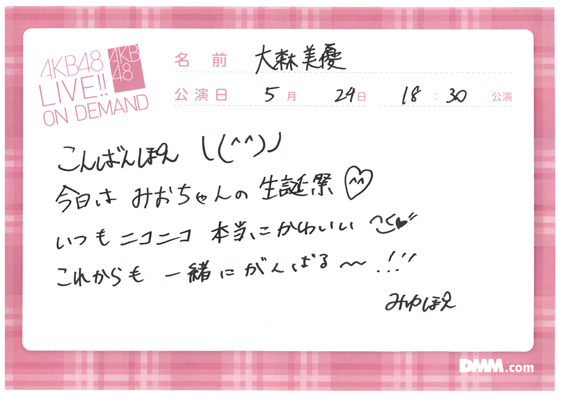 AKB48
LIVE!!
ON DEMAND
AKB
48
名前 大森美優
公演日 5月 29日 18:30 公演
こんばんほえ \(^^)/
今日は みおちゃんの 生誕祭
いつも ニコニコ 本当にかわいい
これからも 一緒にがんばる〜!!!
みゆぽえ
DMM.com